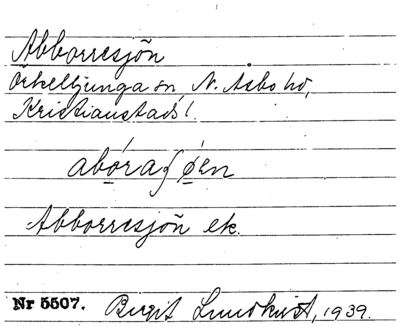 Abborresjön
Örkelljunga sn, N. Åsbo hd,
Kristianstads l.
abóraʃøen
Abborresjön ek.
Nr 5507. Birgit Lundkvist, 1939.